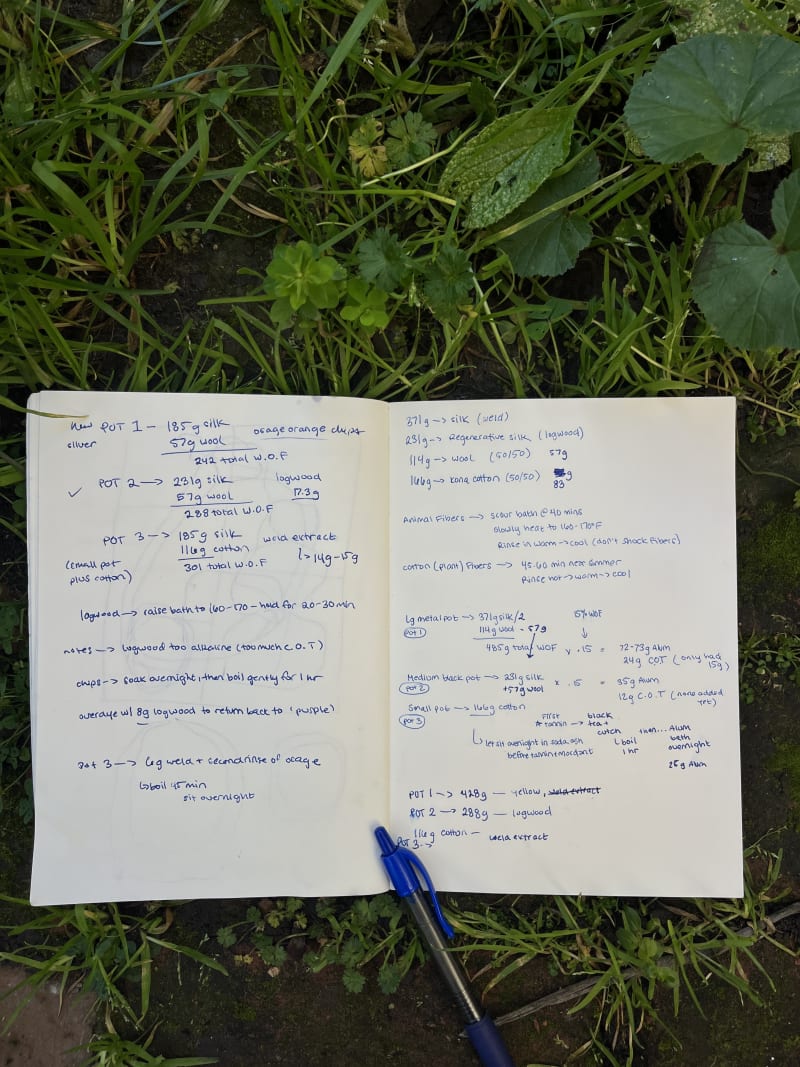 new POT 1 — 185g silk
silver 57g wool osage orange chips
242 total W.O.F
✓ POT 2 → 231g silk logwood
57g wool 17.3g
288 total W.O.F
POT 3 → 185g silk weld extract
(small pot 116g cotton ↳ 14g-15g
plus cotton) 301 total W.O.F
logwood → raise bath to 160-170 - hold for 20-30 min
notes → logwood too alkaline (too much C.O.T)
chips → soak overnight, then boil gently for 1 hr
overdye w/ 8g logwood to return back to 'purple'
Pot 3 → 6g weld + second rinse of osage
↳ boil 45 min
sit overnight
371g → silk (weld)
231g → Regenerative silk (logwood)
114g → wool (50/50) 57g
166g → kona cotton (50/50) g
83
Animal Fibers → scour bath @ 40 mins
slowly heat to 160-170°F
Rinse in warm → cool (don't shock fibers)
cotton (plant) Fibers → 45-60 min near simmer
Rinse hot → warm → cool
Lg metal pot → 371g silk/2 15% WOF
POT 1 114g wool - 57g ↓
485g total WOF x .15 = 72-73g Alum
24g COT (only had
15g)
Medium back pot → 231g silk x .15 = 35g Alum
POT 2 +57g wool 12g C.O.T (none added
yet)
Small pot → 166g cotton
POT 3 First black
* tannin → tea + then... Alum
cutch bath
↳ let sit overnight in soda ash ↳ boil overnight
before tannin + mordant 1 hr
25g Alum
POT 1 → 428g — yellow, weld extract
POT 2 → 288g — logwood
116g cotton — weld extract
POT 3 →